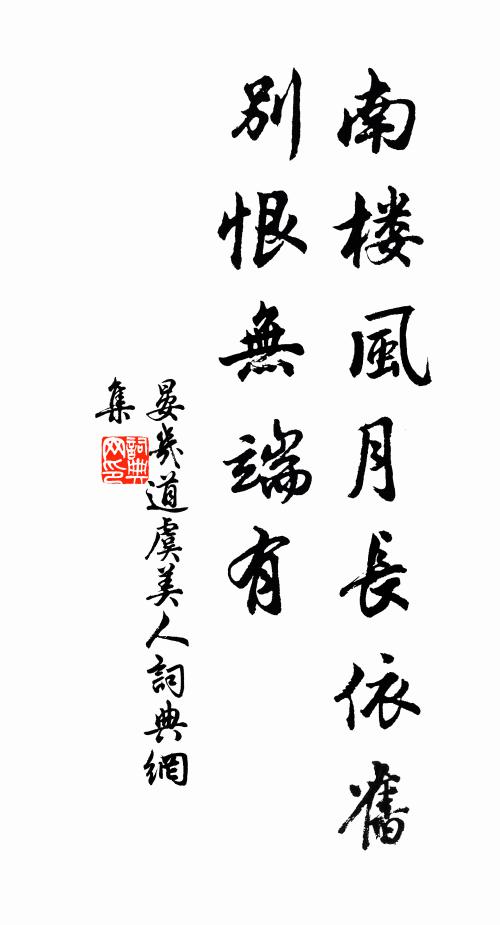 南楼風月長依舊
別恨無端有
晏幾道虞美人詞典網
集
詞典
网印